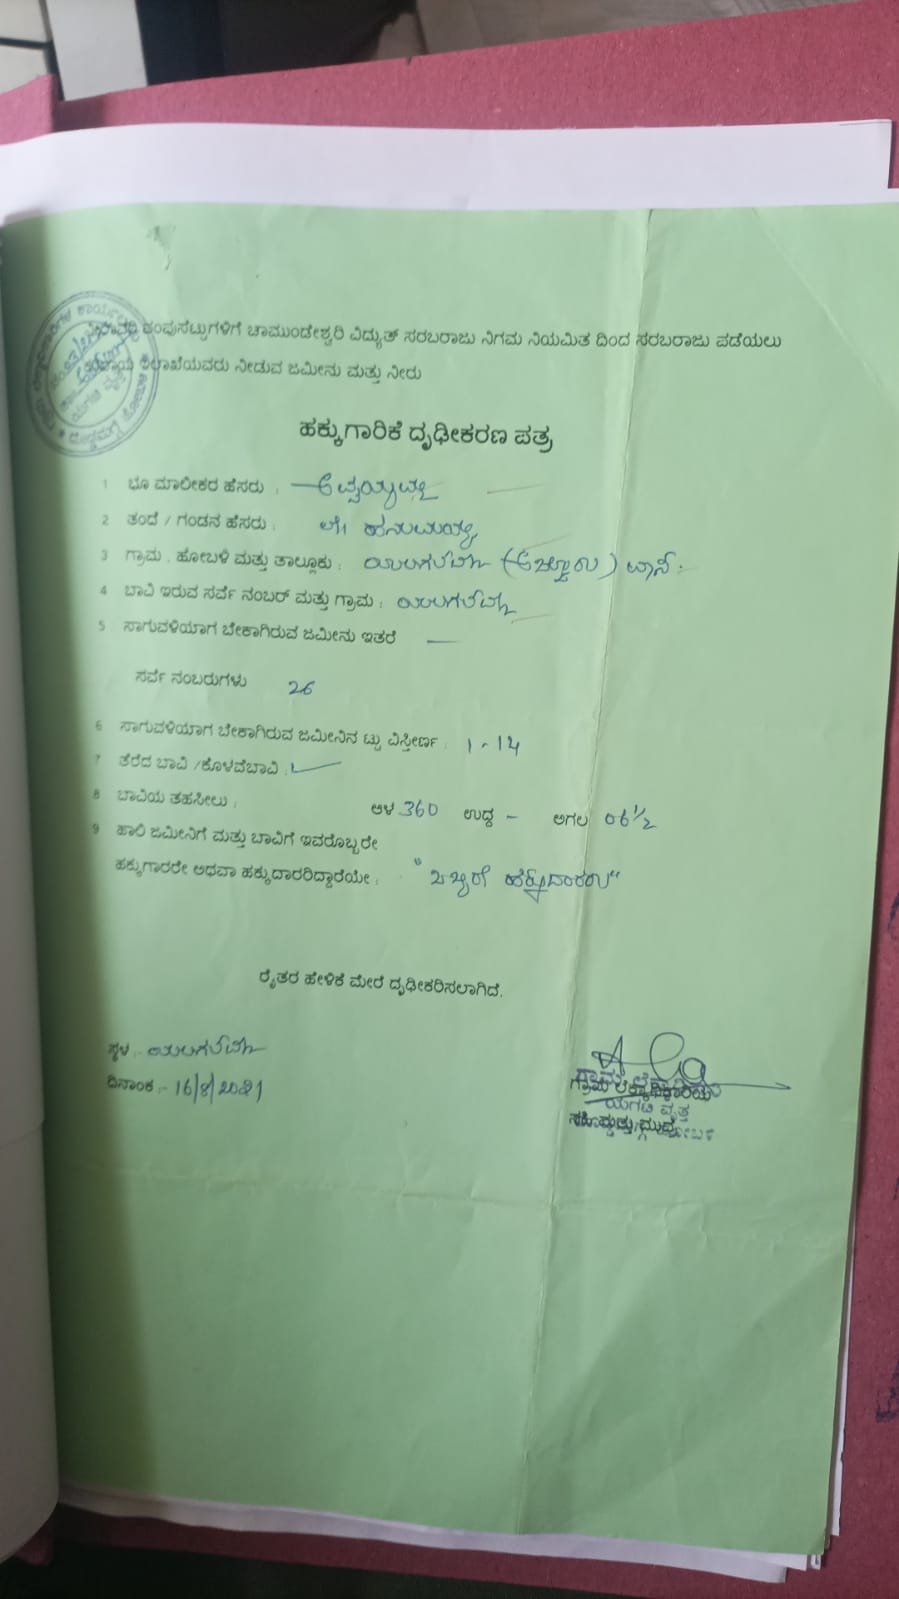 ನೀರಾವರಿ ಪಂಪುಸೆಟ್ಟುಗಳಿಗೆ ಚಾಮುಂಡೇಶ್ವರಿ ವಿದ್ಯುತ್ ಸರಬರಾಜು ನಿಗಮ ನಿಯಮಿತ ದಿಂದ ಸರಬರಾಜು ಪಡೆಯಲು
ಕಂದಾಯ ಇಲಾಖೆಯವರು ನೀಡುವ ಜಮೀನು ಮತ್ತು ನೀರು
ಹಕ್ಕುಗಾರಿಕೆ ದೃಢೀಕರಣ ಪತ್ರ
1 ಭೂ ಮಾಲೀಕರ ಹೆಸರು :
2 ತಂದೆ / ಗಂಡನ ಹೆಸರು : ಲೇ। ಹನುಮಯ್ಯ
3 ಗ್ರಾಮ , ಹೋಬಳಿ ಮತ್ತು ತಾಲ್ಲೂಕು :
4 ಬಾವಿ ಇರುವ ಸರ್ವೆ ನಂಬರ್ ಮತ್ತು ಗ್ರಾಮ :
5 ಸಾಗುವಳಿಯಾಗ ಬೇಕಾಗಿರುವ ಜಮೀನು ಇತರೆ —
ಸರ್ವೆ ನಂಬರುಗಳು 26
6 ಸಾಗುವಳಿಯಾಗ ಬೇಕಾಗಿರುವ ಜಮೀನಿನ ಟ್ಟು ವಿಸ್ತೀರ್ಣ : 1-14
7 ತೆರೆದ ಬಾವಿ /ಕೊಳವೆಬಾವಿ :
8 ಬಾವಿಯ ತಹಸೀಲು : ಆಳ 360 ಉದ್ದ – ಅಗಲ 06½
9 ಹಾಲಿ ಜಮೀನಿಗೆ ಮತ್ತು ಬಾವಿಗೆ ಇವರೊಬ್ಬರೇ
ಹಕ್ಕುಗಾರರೇ ಅಥವಾ ಹಕ್ಕುದಾರರಿದ್ದಾರೆಯೇ : "ಒಬ್ಬರೇ ಹಕ್ಕುದಾರರು"
ರೈತರ ಹೇಳಿಕೆ ಮೇರೆ ದೃಢೀಕರಿಸಲಾಗಿದೆ.
ಸ್ಥಳ :-
ದಿನಾಂಕ :- 16/8/2021
ಗ್ರಾಮ ಲೆಕ್ಕಾಧಿಕಾರಿಯ
ಯಗಟಿ ವೃತ್ತ
ಸಹಿ ಮತ್ತು ಮುದ್ರೆ